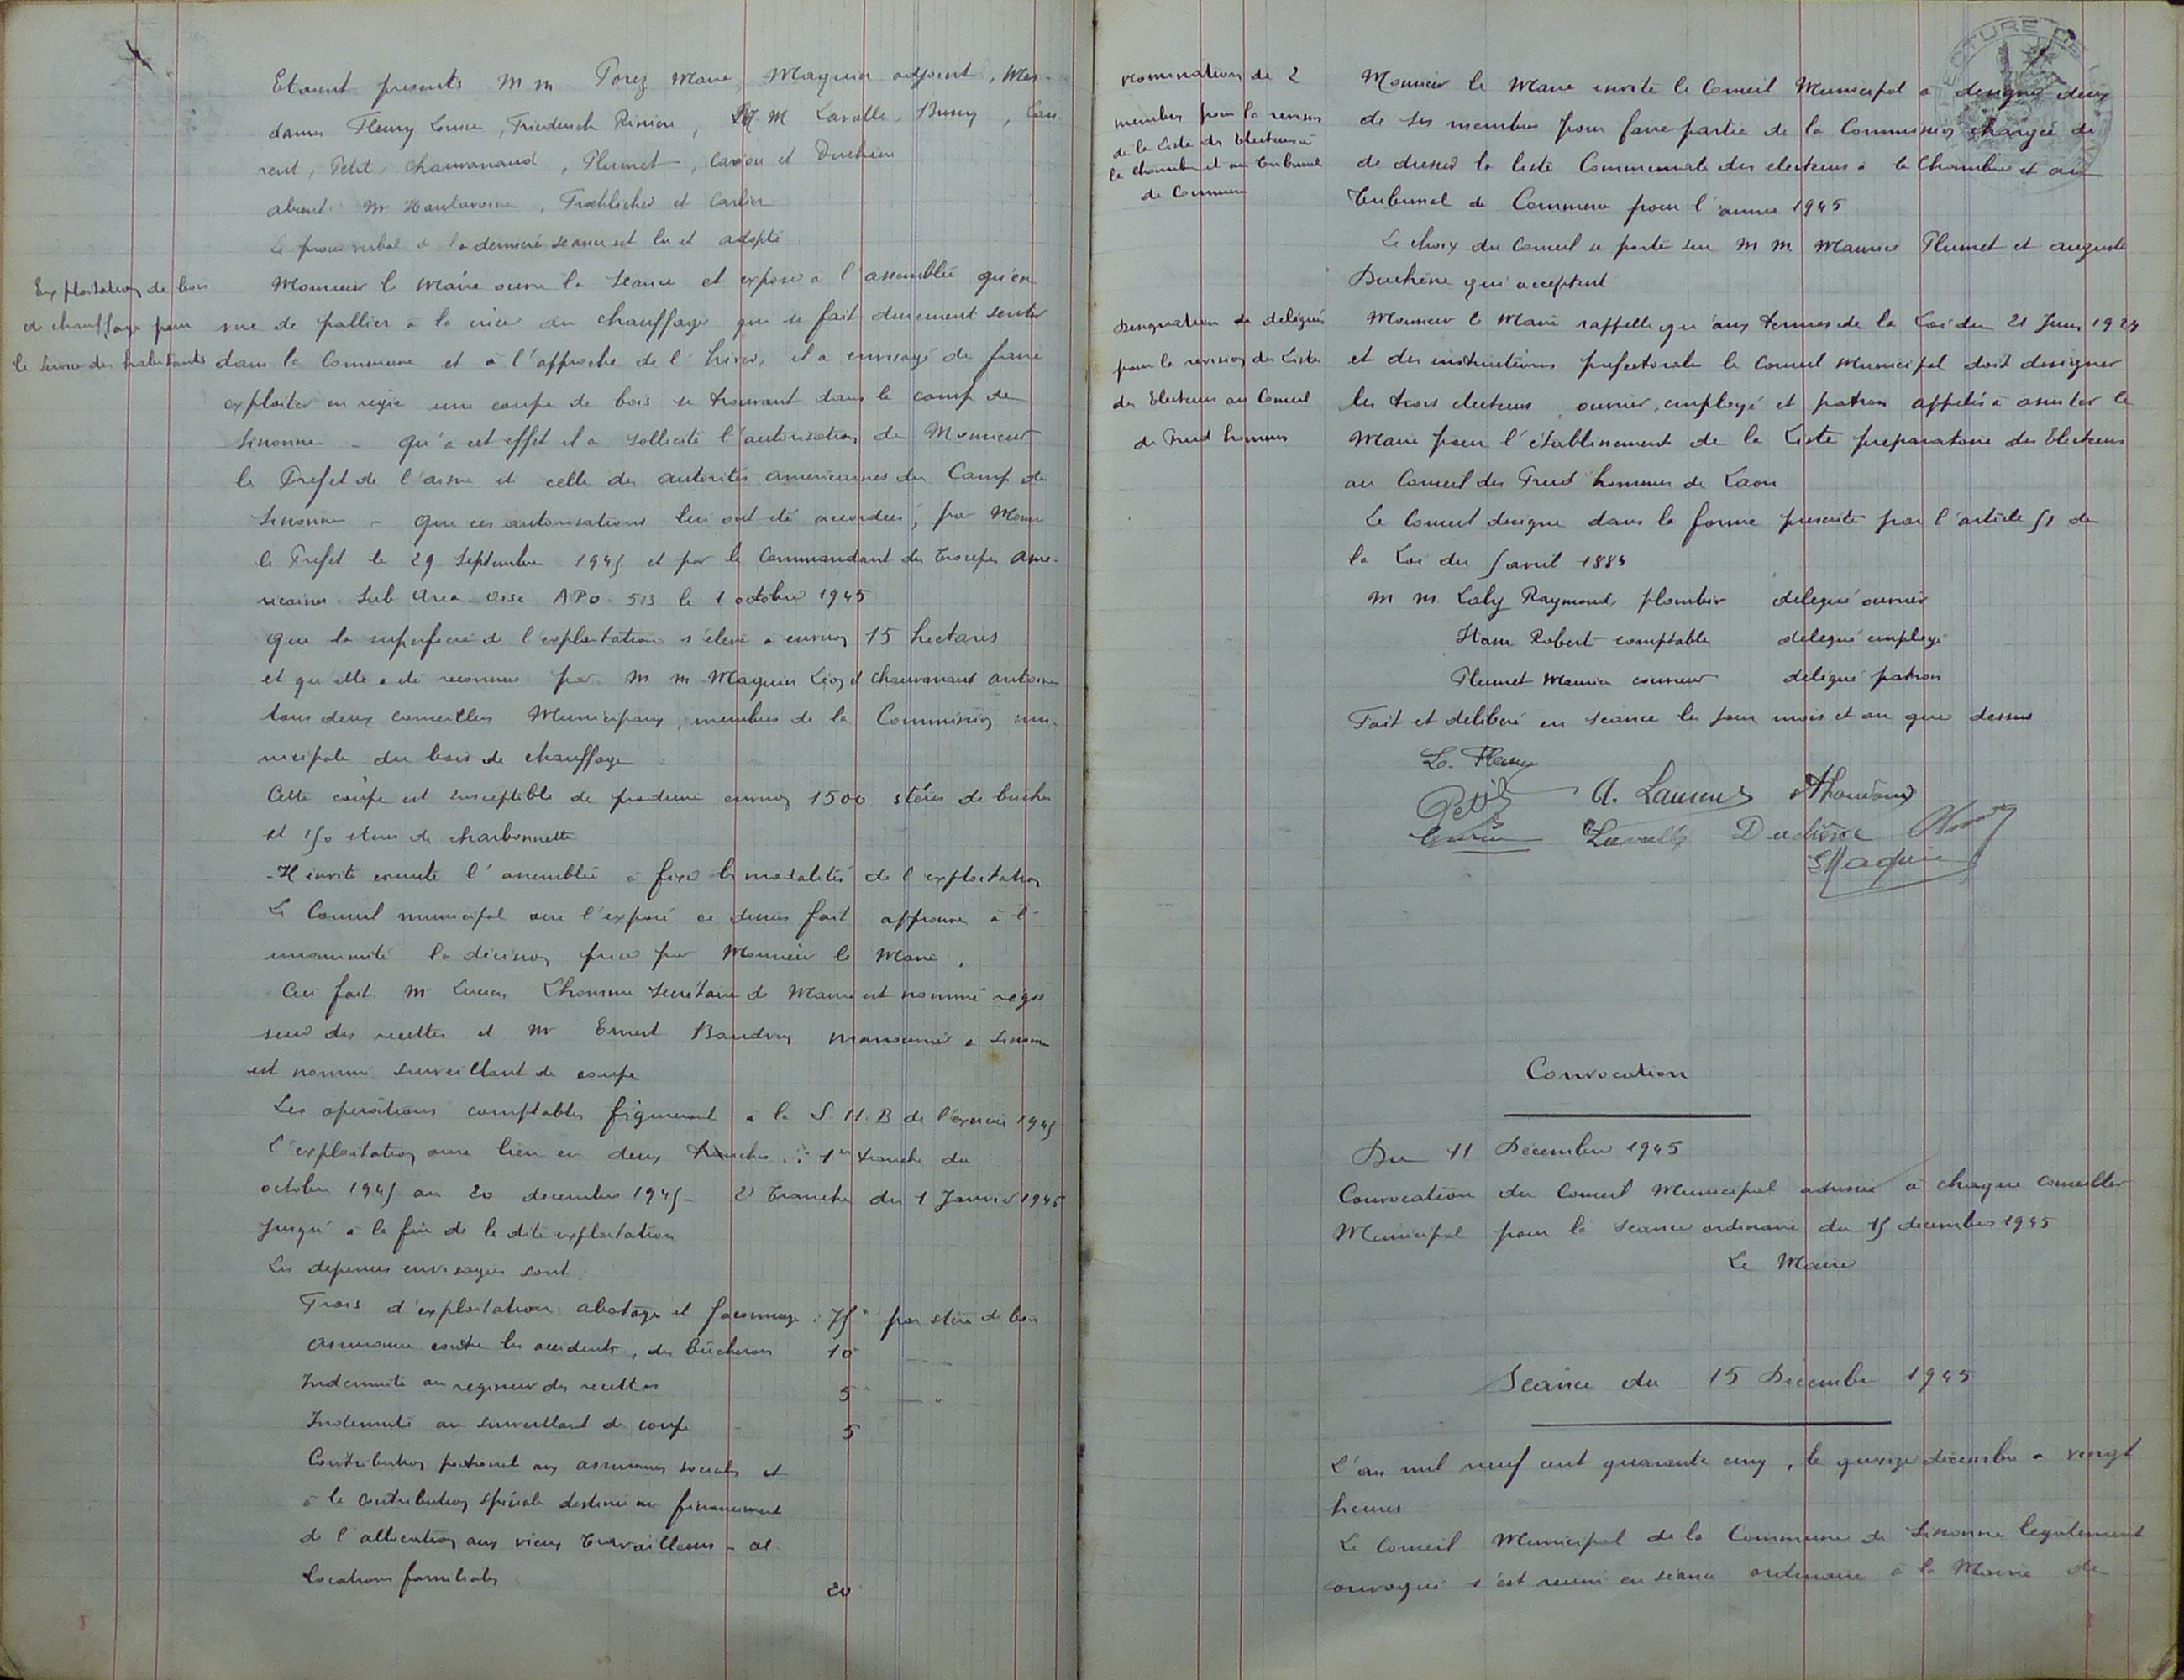 Etaient presents M M Porez Maire, Maquin adjoint, Mes-
dames Fleury Louise, Friederich Rivière, M M Lavalle, Bussy, Lau-
rent, Petit, Chauvanaud, Plumet, Caron et Duchène
absent Mr Hautavoine, Froehlicher et Carlier
Le procès verbal de la dernière séance est lu et adopté
Exploitation de bois
de chauffage pour
le service des habitants
Monsieur le Maire ouvre la séance et expose à l'assemblée qu'en
vue de pallier à la crise du chauffage qui se fait durement sentir
dans la Commune et à l'approche de l'hiver, il a envisagé de faire
exploiter en régie une coupe de bois se trouvant dans le camp de
Sissonne - qu'à cet effet il a sollicité l'autorisation de Monsieur
le Préfet de l'aisne et celle des autorités américaines du Camp de
Sissonne - que ces autorisations lui ont été accordées, par Monsr
le Préfet le 29 Septembre 1945 et par le Commandant des Troupes Amé-
ricaines. Sub Area Oise APO 513 le 1 octobre 1945
que la superficie de l'exploitation s'élève à environ 15 hectares
et qu'elle a été reconnue par M M Maquin Léon et Chauvanaud Antoine
tous deux conseillers Municipaux, membres de la Commission mu-
nicipale du bois de chauffage
Cette coupe est susceptible de produire environ 1500 stères de buches
et 150 stères de charbonnette
- Il invite ensuite l'assemblée à fixer les modalités de l'exploitation
Le Conseil municipal oui l'exposé ci dessus fait approuve à l'-
unanimité la décision prise par Monsieur le Maire.
Ceci fait Mr Lucien Lhomme Secrétaire de Mairie est nommé régis
seur des recettes et Mr Ernest Baudry manouvrier à Sissonne
est nommé surveillant de coupe
Les opérations comptables figureront à la S H. B de l'exercice 1945
L'exploitation aura lieu en deux tranches : 1re tranche du
octobre 1945 au 20 decembre 1945 - 2e Tranche du 1 Janvier 1946
jusqu'à la fin de la dite exploitation
Les dépenses envisagées sont
Frais d'exploitation abatage et façonnage 75 par stère de bois
Assurance contre les accidents, des bûcherons 10
Indemnité au régisseur des recettes 5
Indemnité au surveillant de coupe 5
Contribution patronale aux assurances sociales et
à la contribution spéciale destinée au financement
de l'allocation aux vieux Travailleurs - al-
locations familiales 20
nomination de 2
membres pour la revision
de la Liste des Electeurs à
la chambre et au Tribunal
de Commerce
Monsieur le Maire invite le Conseil Municipal à designer deux
de ses membres pour faire partie de la Commission chargée de
de dresser la liste Communale des electeurs à la Chambre et au
Tribunal de Commerce pour l'année 1945
Le choix du Conseil se porte sur M M Maurice Plumet et auguste
Duchène qui acceptent
Designation de délégués
pour la revision des Listes
des Electeurs au Conseil
de Prud hommes
Monsieur le Maire rappelle qu'aux termes de la Loi du 21 Juin 1924
et des instructions préfectorales le Conseil Municipal doit designer
les trois electeurs, ouvrier, employé et patron appelés à assister le
Maire pour l'établissement de la Liste préparatoire des Electeurs
au Conseil des Prud'hommes de Laon
Le Conseil designe dans la forme prescrite par l'article 51 de
la Loi du 5 avril 1884
M M Laly Raymond, plombier délégué ouvrier
Ham Robert comptable délégué employé
Plumet Maurice couvreur délégué patron
Fait et délibéré en séance les jour mois et an que dessus
L. Fleury
Petit A. Laurent
Lavalle Duchène
Maquin
Convocation
Du 11 Décembre 1945
Convocation du Conseil Municipal adressée à chaque conseiller
Municipal pour la séance ordinaire du 15 decembre 1945
Le Maire
Séance du 15 Décembre 1945
L'an mil neuf cent quarante cinq, le quinze décembre à vingt
heures
Le Conseil Municipal de la Commune de Sissonne légalement
convoqué s'est réuni en séance ordinaire à la Mairie de